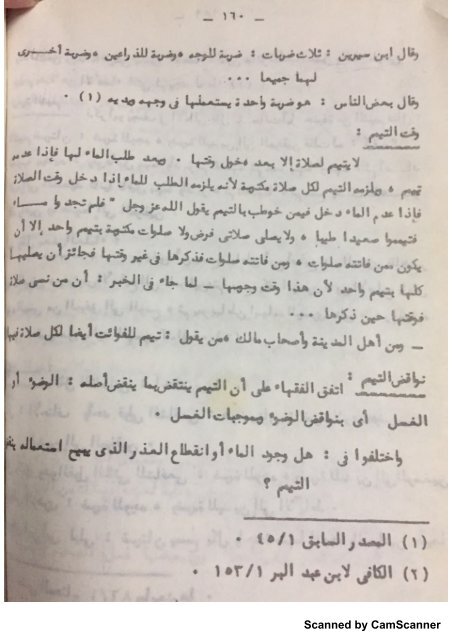 – ١٦٠ –
وقال ابن سيرين : ثلاث ضربات : ضربة للوجه ، وضربة للذراعين ، وضربة أخـــرى
لهما جميعا ٠٠٠
وقال بعض الناس : هو ضربة واحدة يستعملها في وجهه ويديه (١) ٠
وقت التيمم :
لا يتيمم لصلاة إلا بعد دخول وقتها ٠ وبعد طلب الماء لها فإذا عدمه
تيمم ، ويلزمه التيمم لكل صلاة مكتوبة لأنه يلزمه الطلب للماء إذا دخل وقت الصلاة
فإذا عدم الماء دخل فيمن خوطب بالتيمم يقول الله عز وجل " فلم تجدوا مـــاء
فتيمموا صعيدا طيبا ، ولا يصلى صلاتى فرض ولا صلوات مكتوبة بتيمم واحد إلا أن
يكون ممن فاتته صلوات ، ومن فاتته صلوات فذكرها في غير وقتها فجائز أن يصليها
كلها بتيمم واحد لأن هذا وقت وجوبها – لما جاء في الخبر : أن من نسى صلاة
فوقتها حين ذكرها ٠٠٠
– ومن أهل المدينة وأصحاب مالك ، من يقول : تيمم للفوائت أيضا لكل صلاة
نواقض التيمم : اتفق الفقهاء على أن التيمم ينتقض بما ينقض أصله : الوضوء أو
الغسل أى بنواقض الوضوء وموجبات الغسل ٠
واختلفوا في : هل وجود الماء أو انقطاع العذر الذى يبيح استعماله
التيمم ؟
(١) المصدر السابق ٤٥/١ ٠
(٢) الكافى لابن عبد البر ١٥٣/١ ٠
Scanned by CamScanner